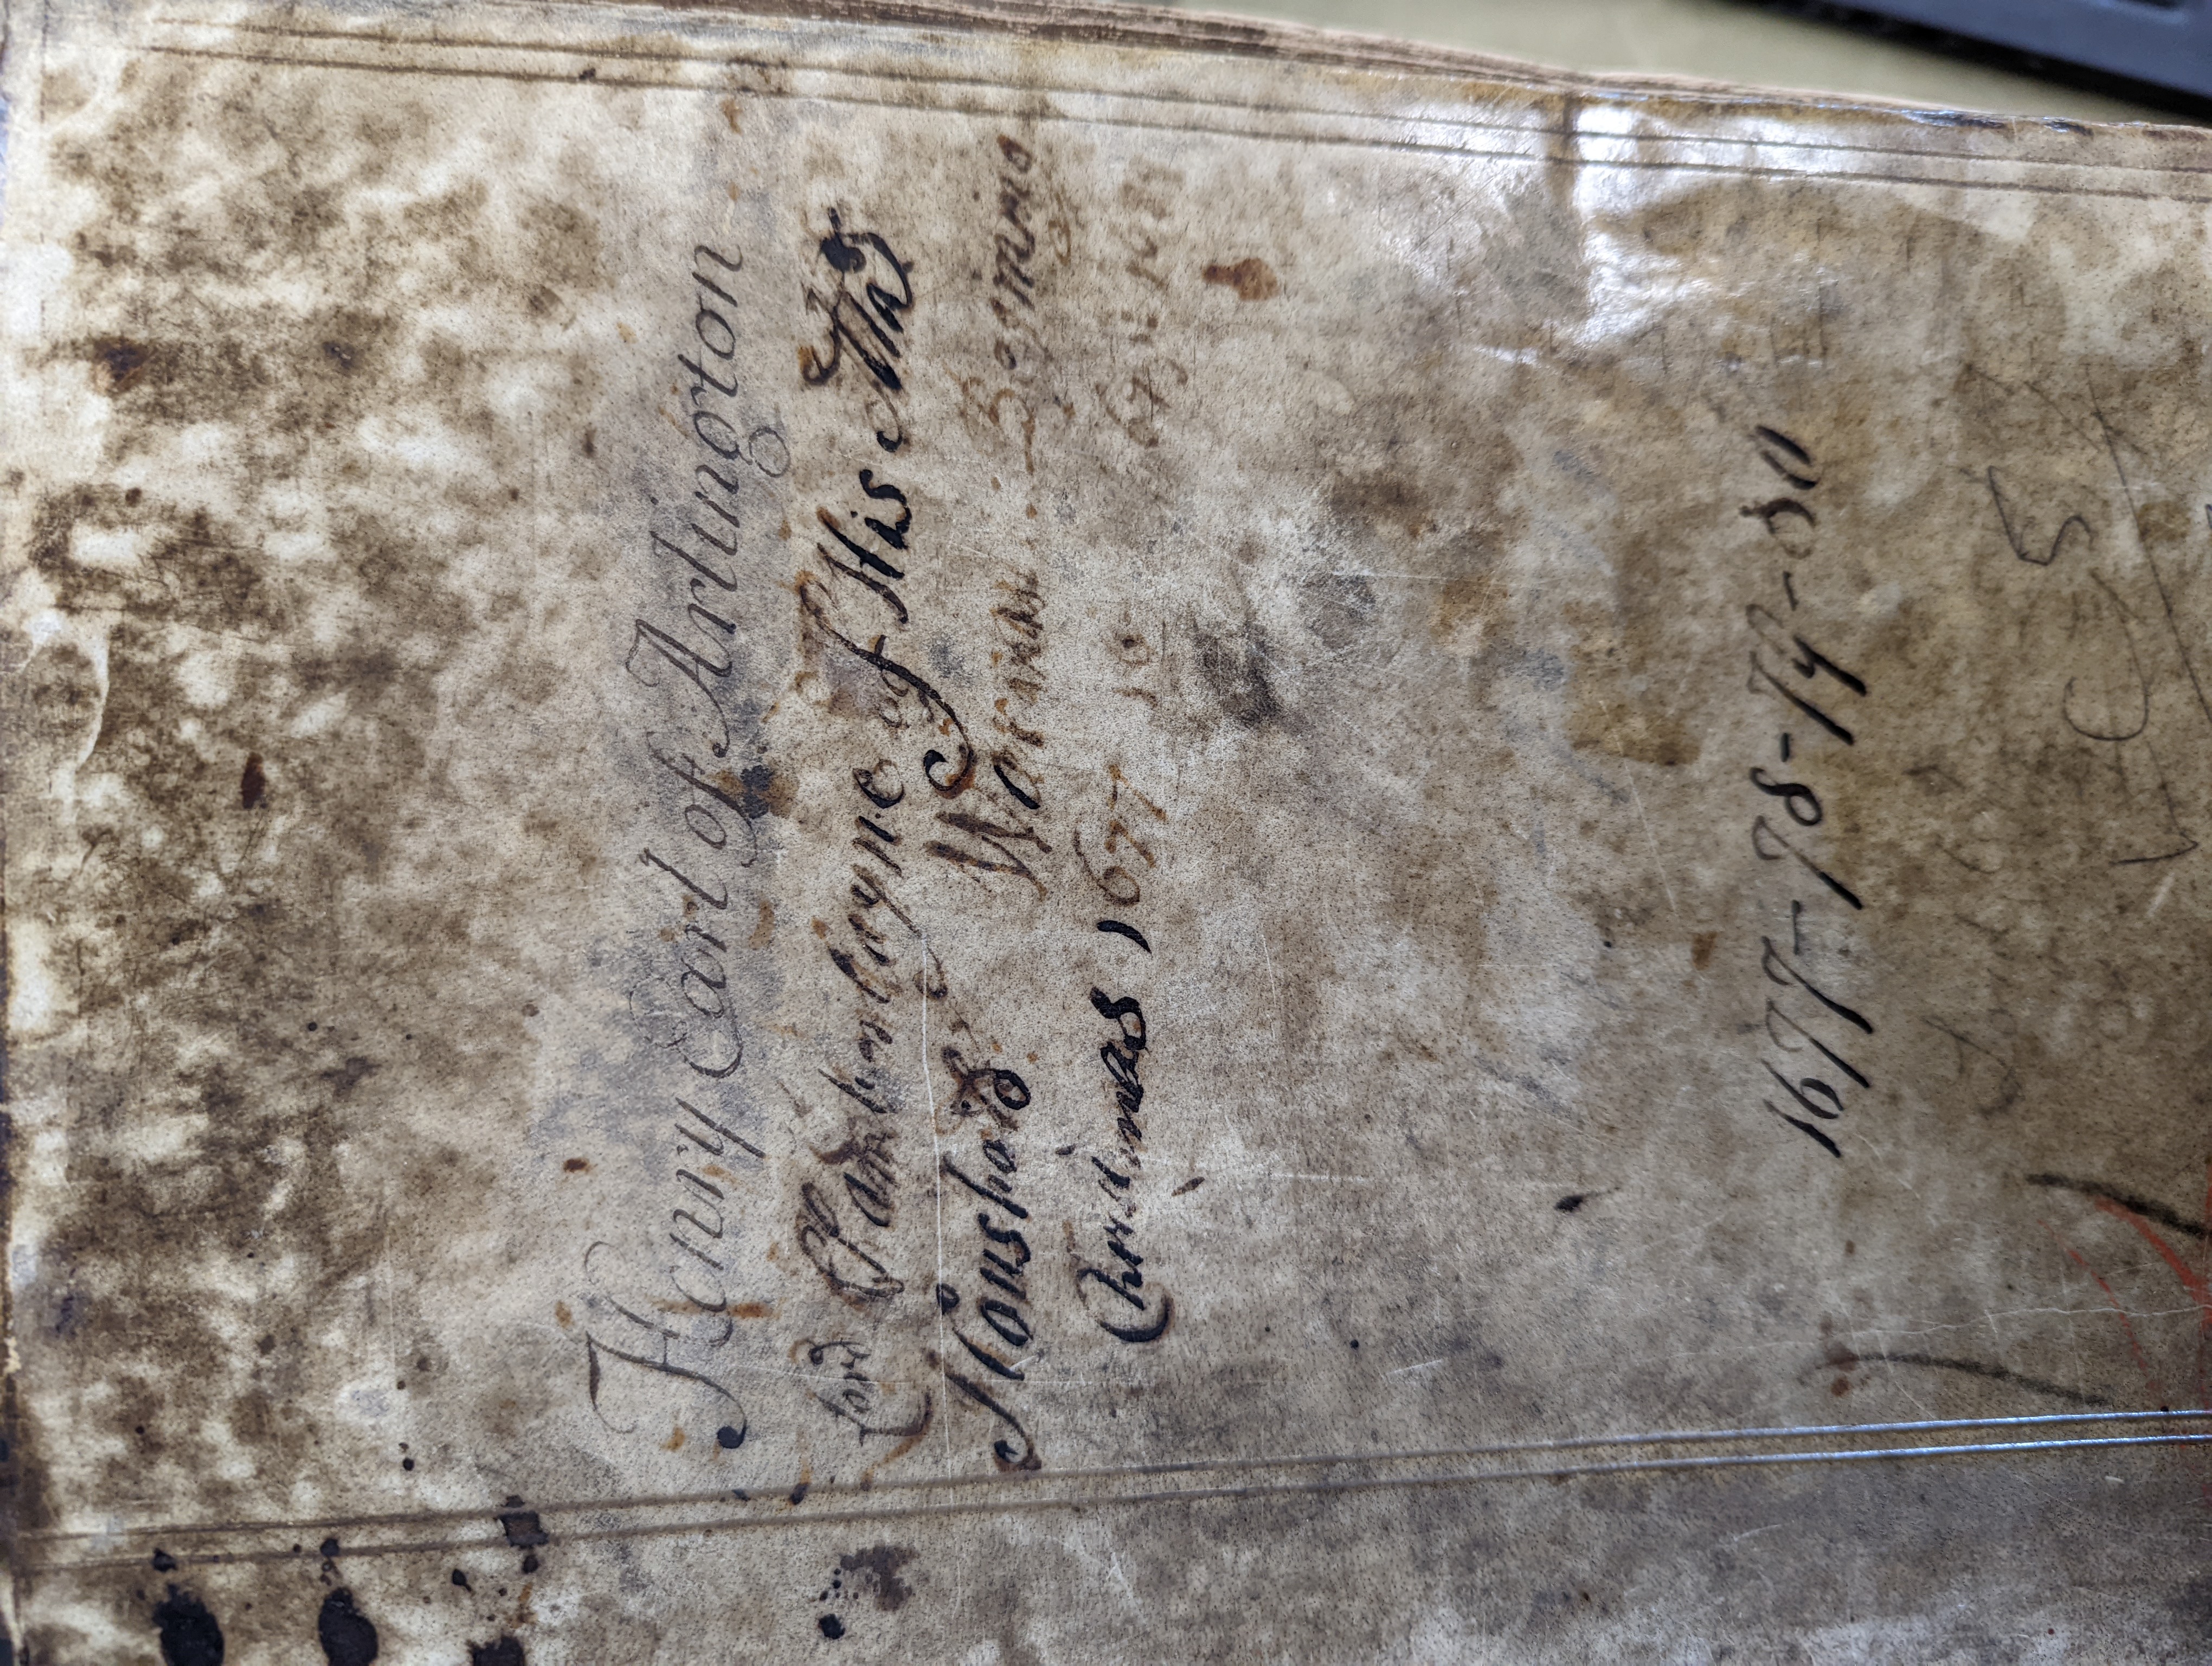 Henry Earl of Arlington
Lord Chamberlayne of His Mats
Houshold Warrants Beginns
Christmas 1677 to
1677-78-79-80